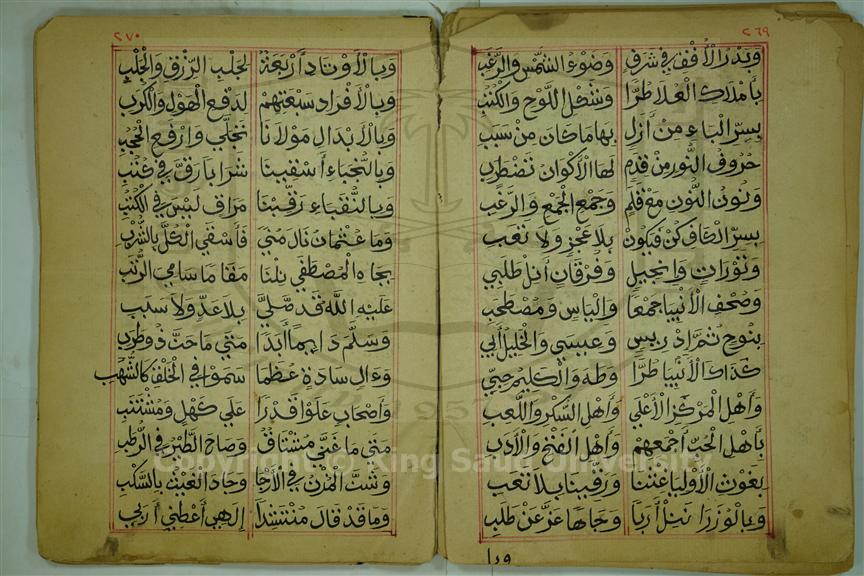 ٢٦٩
وبدر الأفق في شرف وضوء الشمس والرغب
بأملاك العلا طرا وشكل اللوح والكتب
بسر الباء من أزل بها ما كان من سبب
حروف النور من قدم لها الأكوان تضطرب
ونون النون مع قلم وجمع الجمع والرغب
بسر الكاف كن فيكون بلا عجز ولا تعب
وتورات وانجيل وفرقان أنل طلبي
وصحف الأنبيا جمعا والياس ومصطحب
بنوح ثم إدريس وعيسى والخليل أبي
كذاك الأنبيا طرا وطه والكليم حبي
وأهل المركز الأعلى وأهل السكر واللعب
بأهل الحب أجمعهم وأهل الفتح والأدب
بغوث الأوليا غثنا ورقينا بلا تعب
وبالوزرا ننل أربا وجاها عز عن طلب
٢٧٠
وبالأوتاد أربعة لجلب الرزق والجلب
وبالأفراد سبعتهم لدفع الهول والكرب
وبالأبدال مولانا تجلى وارفع الحجب
وبالنجباء أسقينا شرابا رق في عنب
وبالنقباء رقينا مراق ليس في الكتب
وما عثمان نال منى فأسقي الكل بالشرب
بجاه المصطفى نلنا مقاما سامي الرتب
عليه الله قد صلى بلا عد ولا سبب
وسلم دايما أبدا متى ما حن ذو طرب
وءال سادة عظما سموا في الخلق كالشهب
وأصحاب علوا قدرا على كهل ومشتبب
متى ما غنى مشتاق وصاح الطير في الرطب
وشت المزن في الأرجا وجاد الغيث بالسكب
وما قد قال منتشدا إلهي أعطني أربي